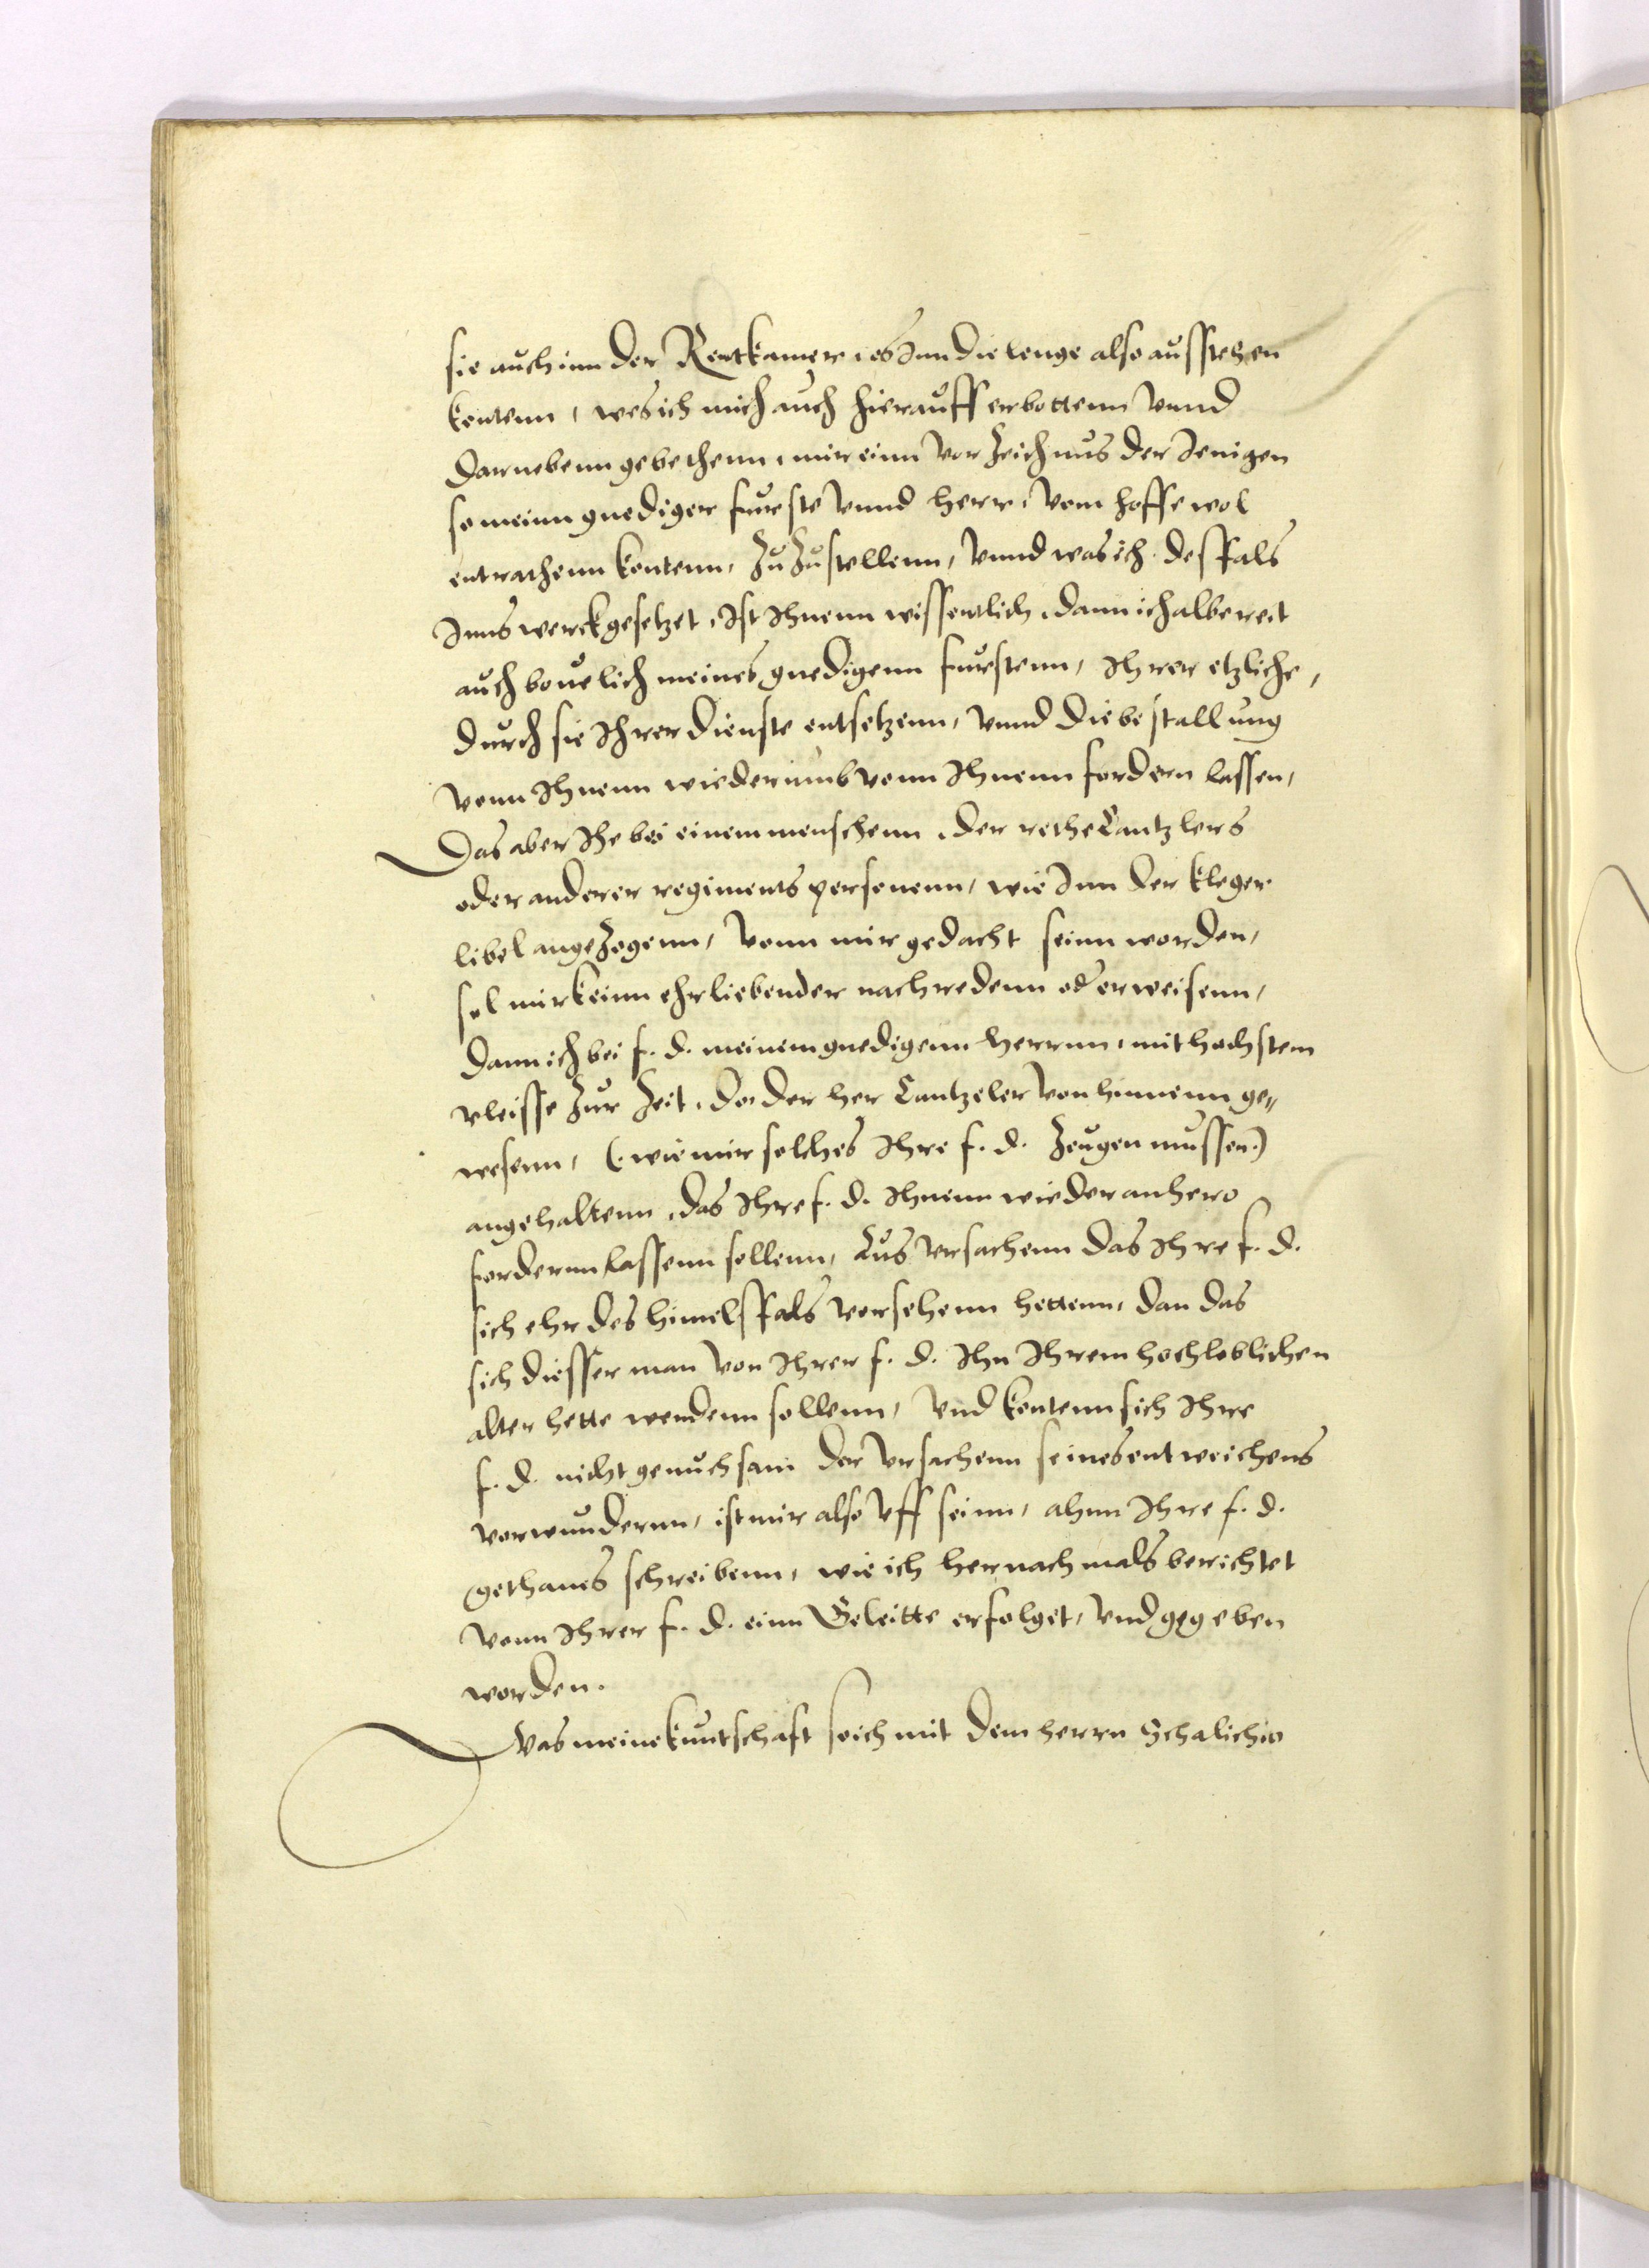 sie auch inn der Rentkamer, es Inn die lenge also aussstehen
kontenn, wes ich mich auch hierauff erbottenn vnnd
darnebenn gebethenn, mir einn vorzeichnus der Jenigen
so meinn gnediger furste vnnd herr, vom hoffe wol
entrathenn kontenn, zuzustellenn, vnnd was ich desfals
Inns werck gesetzet, Ist Ihnenn wissentlich, dann ich albereit
auch beuelich meines gnedigenn furstenn, Ihrer etzliche,
durch sie Ihrer dienste entsetzenn, vnnd die bestallung
vonn Ihnenn wiederumb vonn Ihnenn fordern lassen,
Das aber Ihe bei einem menschenn, der rethe Cantzlers
oder anderer regiments personenn, wie Inn der kleger
libel angezogenn, vonn mir gedacht seinn worden,
sol mir keinn ehrliebender nachredenn oder erweisenn,
dann ich bei f. d. meinem gnedigenn herrnn, mit hochstem
vleisse zur zeit, do der her Cantzeler von hinnenn ge„
wesenn, (: wie mir solches Ihre f. d. zeugen mussen:)
angehaltenn, das Ihre f. d. Ihnenn wieder anhero
fordernn lassenn sollenn, Aus vrsachenn das Ihre f. d.
sich ehr des himelsfals versehenn hettenn, dan das
sich diesser man von Ihrer f. d. Ihn Ihrem hochloblichen
alter hette wendenn sollenn, vnd kontenn sich Ihre
f. d. nicht genuchsam der vrsachenn seines entweichens
vorwundernn, ist mir also vff seinn, ahnn Ihre f. d.
gethanes schreibenn, wie ich hernachmals berichtet
vonn Ihrer f. d. einn Geleitte erfolget, vnd gegeben
worden.
Was meine kuntschaft so ich mit dem herrn Schalichio